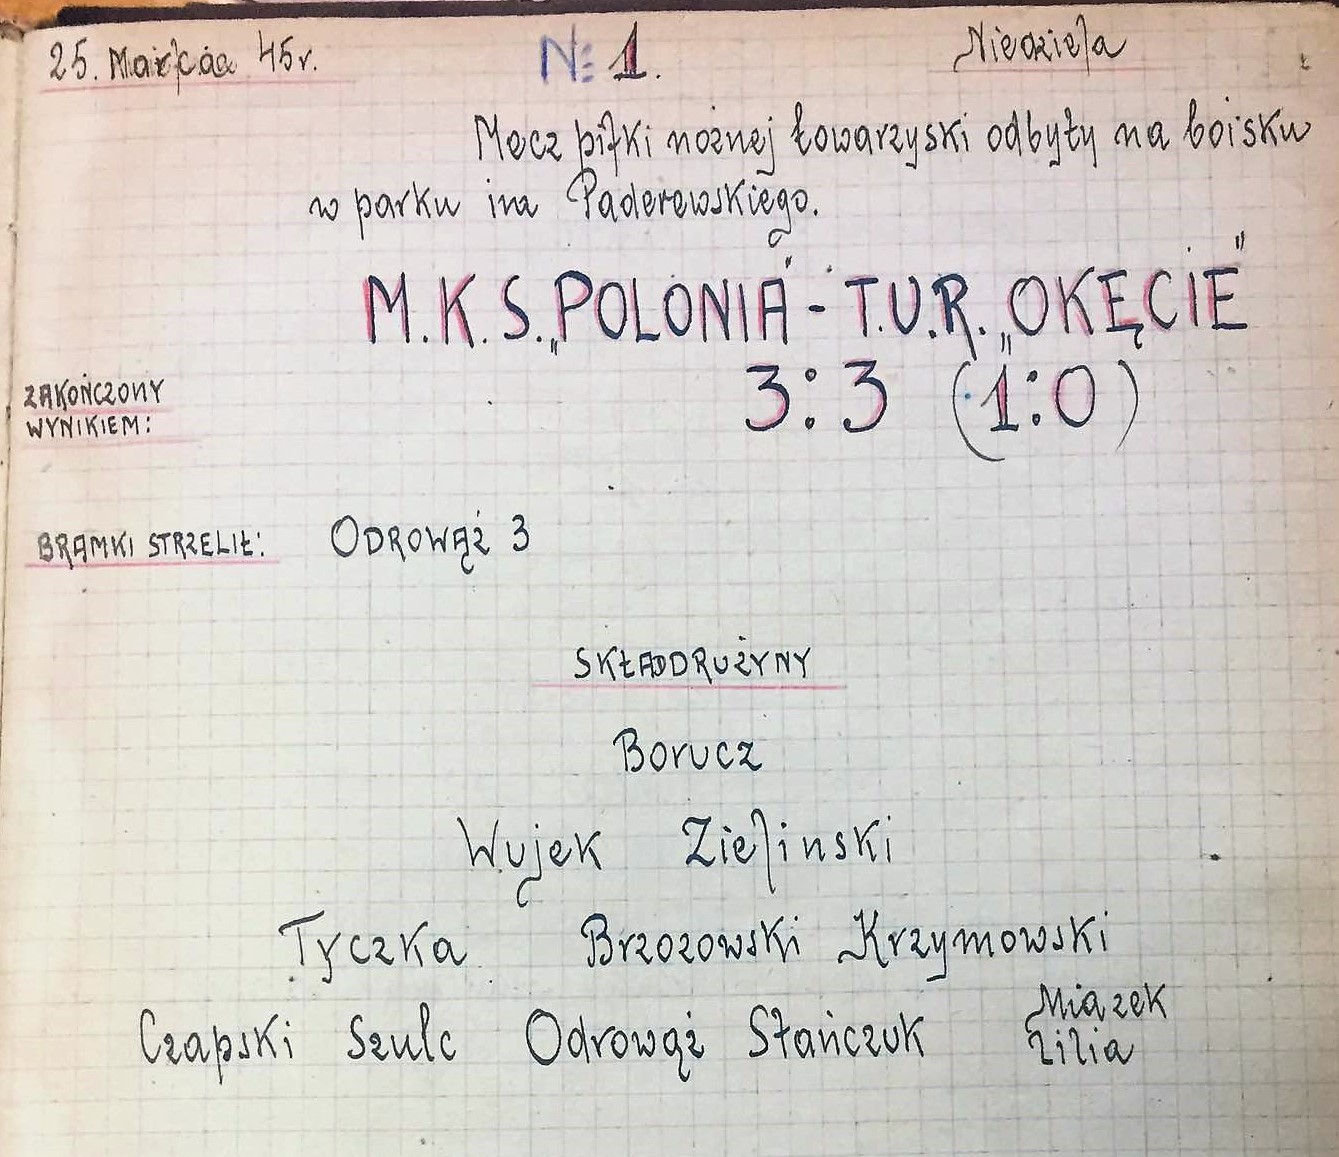 25. Marca 45r. № 1. Niedziela
Mecz piłki nożnej towarzyski odbyty na boisku
w parku im Paderewskiego.
M.K.S. „POLONIA" - T.U.R. „OKĘCIE"
ZAKOŃCZONY
WYNIKIEM: 3:3 (1:0)
BRAMKI STRZELIŁ: ODROWĄŻ 3
SKŁAD DRUŻYNY
Borucz
Wujek Zielinski
Tyczka Brzozowski Krzymowski
Czapski Szulc Odrowąż Stańczuk Miązek
Lilia